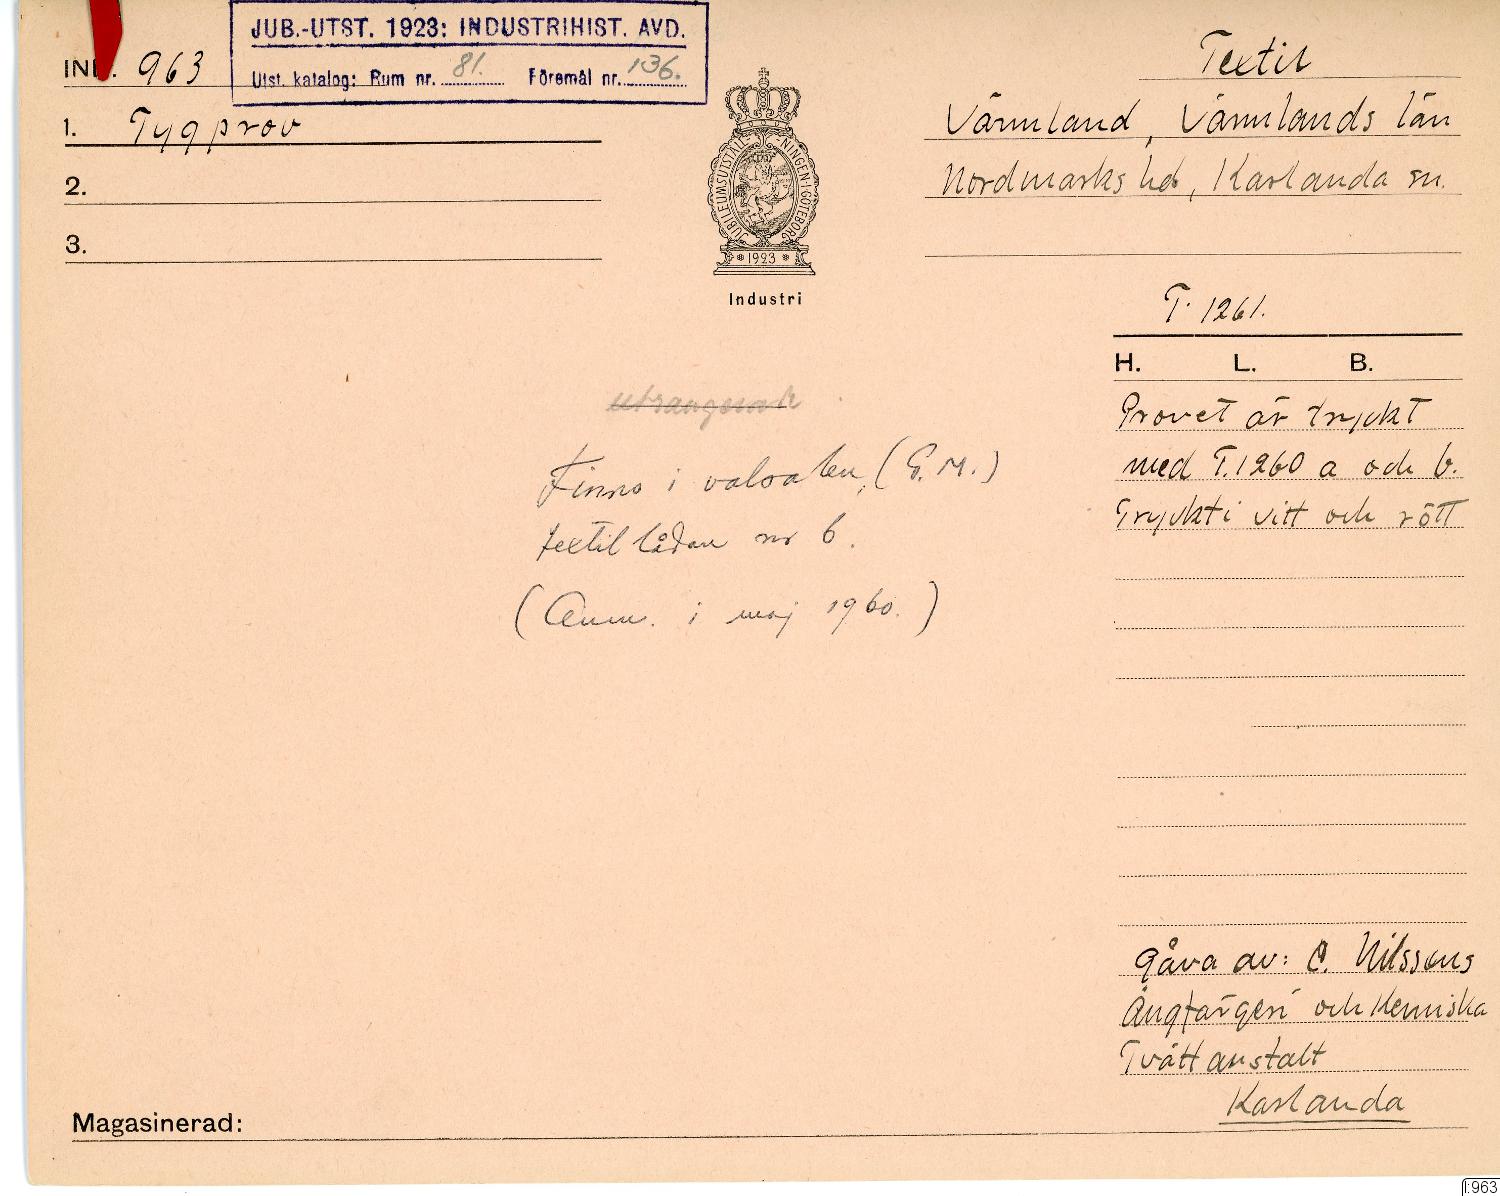 JUB.-UTST. 1923: INDUSTRIHIST. AVD.
Utst. katalog: Rum nr. 81. Föremål nr. 136.
INV. 963
1. Tygprov
2.
3.
JUBILEUMSUTSTÄLLNINGEN I GÖTEBORG
1923
Industri
Textil
Värmland, Värmlands län
Nordmarks hd, Karlanda sn.
T. 1261.
H. L. B.
Provet är tryckt
med T.1260 a och b.
Tryckt i vitt och rött
utrangerat
Finns i valvaten, (G.M.)
textillådan nr 6.
(Anm. i maj 1960.)
gåva av: C. Nilssons
Ångfärgeri och Kemiska
Tvättanstalt
Karlanda
Magasinerad:
I:963